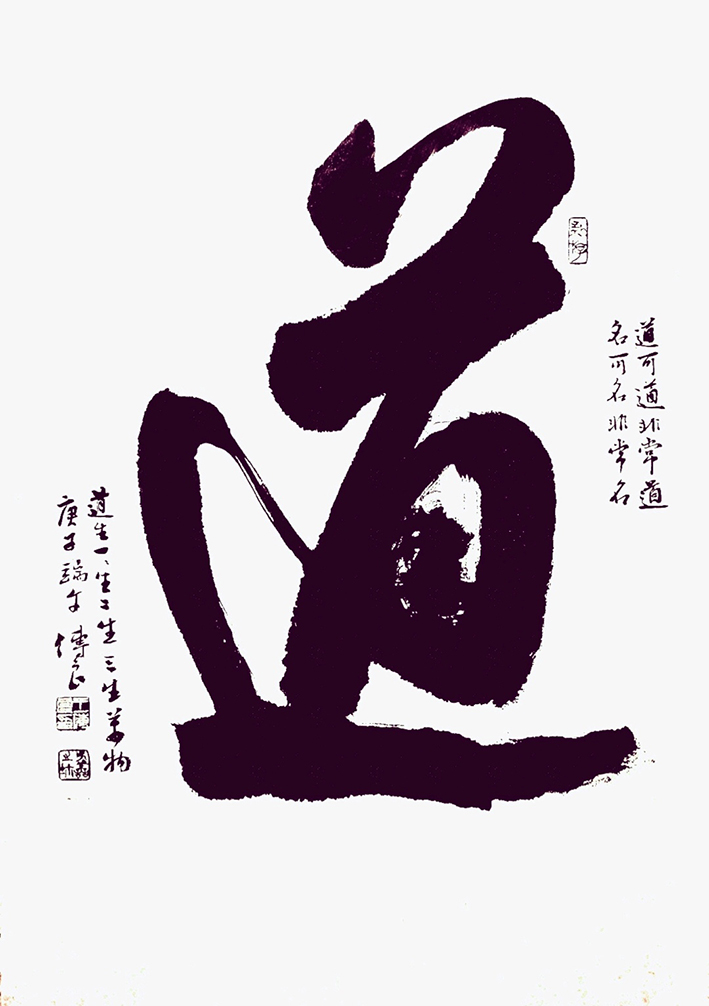 道
道可道非常道
名可名非常名
道生一一生二二生三三生万物
庚子端午 博之